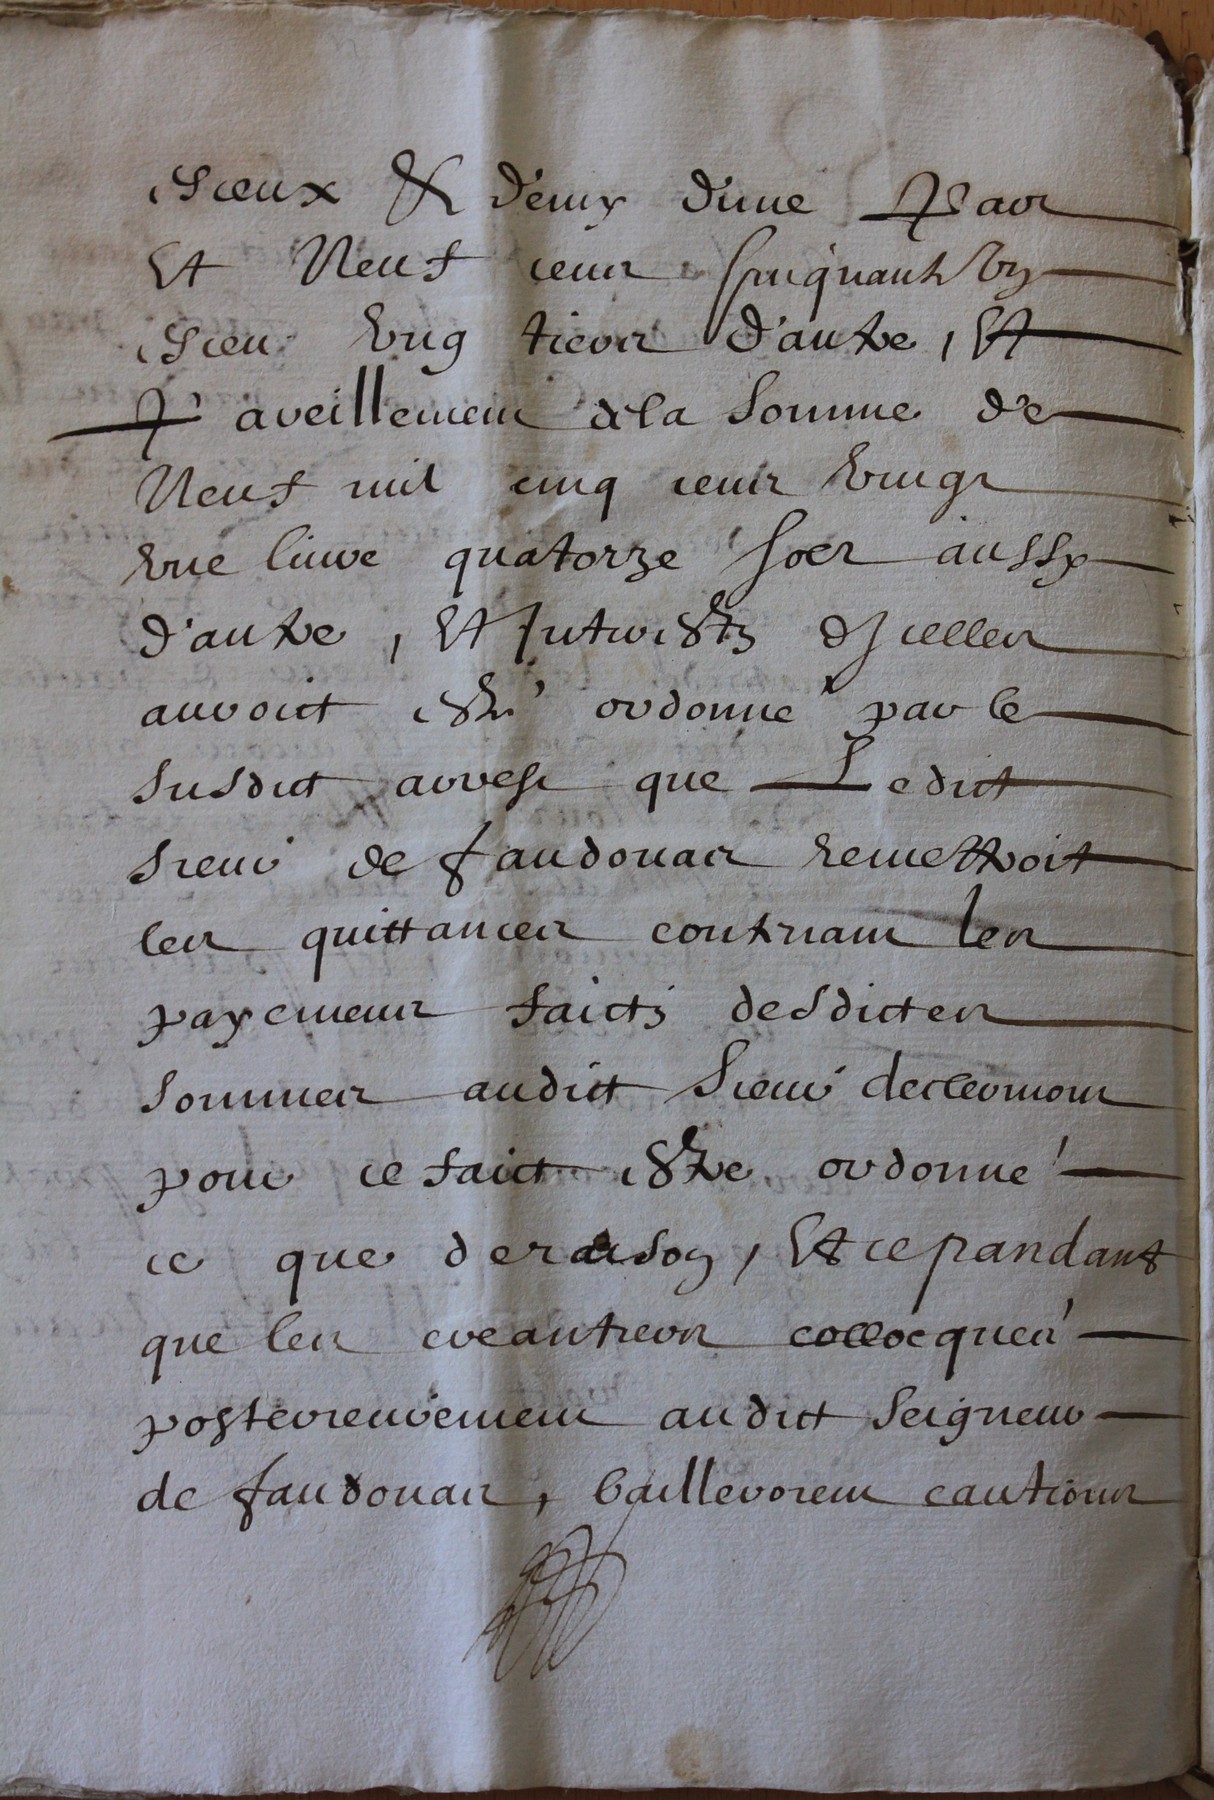 esceux & demy d'une Part
Et Neuf cens sinquante Un
esceu Ung tiers d'autre, Et
Pareillement de la somme de
Neuf mil cinq cens vingt
une livre quatorze solz aussy
d'autre, Et Interestz d'Icelles
auroict esté ordonné par le
susdict arrest que Ledict
sieur de faudouas remettroit
les quittances contenant les
payemens faictz desdictes
sommes audict sieur declermont
pour ce faict estre ordonné
ce que de raison, Et cepandant
que les creantiers collocqués
posterieurement audict seigneur
de faudouas, bailleroient cautions